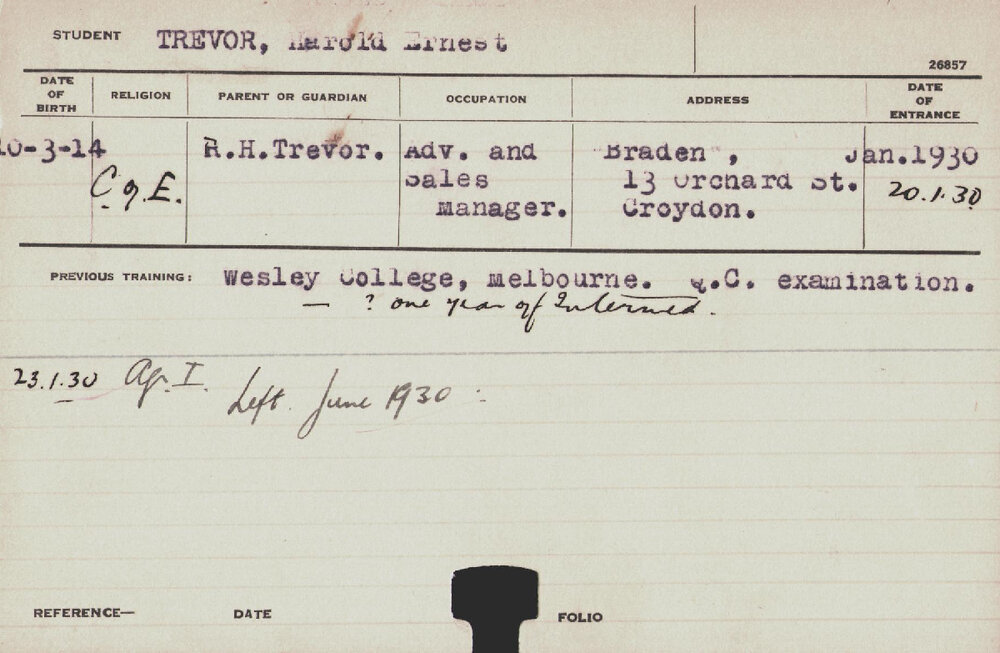 STUDENT TREVOR, Harold Ernest
26857
DATE OF BIRTH RELIGION PARENT OR GUARDIAN OCCUPATION ADDRESS DATE OF ENTRANCE
10-3-14 R.H.Trevor. Adv. and "Braden", Jan.1930
C of E. Sales 13 Orchard St. 20.1.30
Manager. Croydon.
PREVIOUS TRAINING: Wesley College, Melbourne. Q.C. examination.
— ? one year of Intermed.
23.1.30 Ag. I. Left. June 1930
REFERENCE— DATE FOLIO